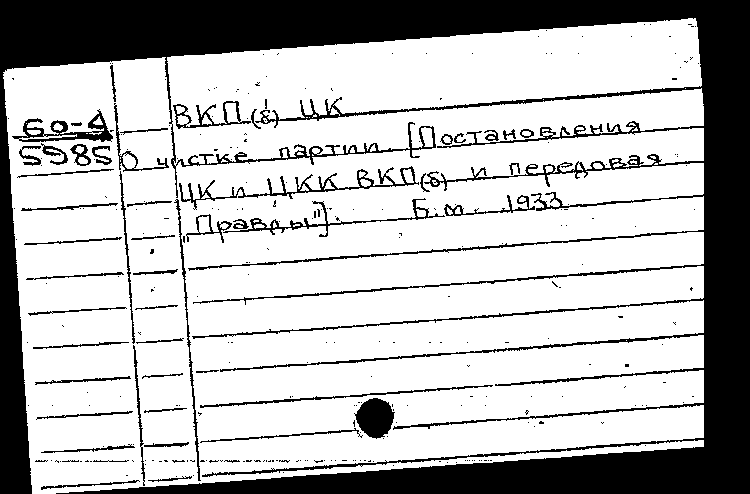 60-4
5985
ВКП(б) ЦК
О чистке партии. [Постановления
ЦК и ЦКК ВКП(б) и передовая
"Правды"]. Б.м. 1933